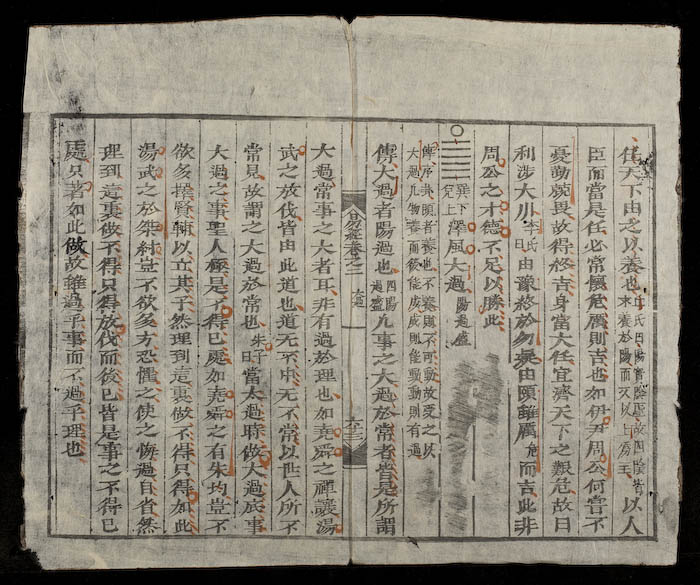 任天下由之以養也王氏曰陽實陰虛故四陰皆求養於陽而又以上爲主以人
臣而當是任必常懷危厲則吉也如伊尹周公何嘗不
憂勤兢畏故得終吉身當大任宜濟天下之艱危故曰
利涉大川李氏曰由豫終於勿疑由頤雖厲危而吉此非
周公之才德不足以勝此
䷛巽下兌上澤風大過陽過盛
傳序卦頤者養也不養則不可動故受之以
大過凡物養而後能成成則能動動則有過
傳大過者陽過也四陽過盛凡事之大過於常者皆是所謂
易經卷之二 大過
大過常事之大者耳非有過於理也如堯舜之禪讓湯
武之放伐皆由此道也道无不中无不常以世人所不
常見故謂之大過於常也朱子曰當太過時做大過底事
大過之事聖人極是不得已處如堯舜之有朱均豈不
欲多擇賢輔以立其子然理到這裏做不得只得如此
湯武之於桀紂豈不欲多方恐懼之使之悔過自省然
理到這裏做不得只得放伐而後已皆是事之不得已
處只著如此做故雖過乎事而不過乎理也